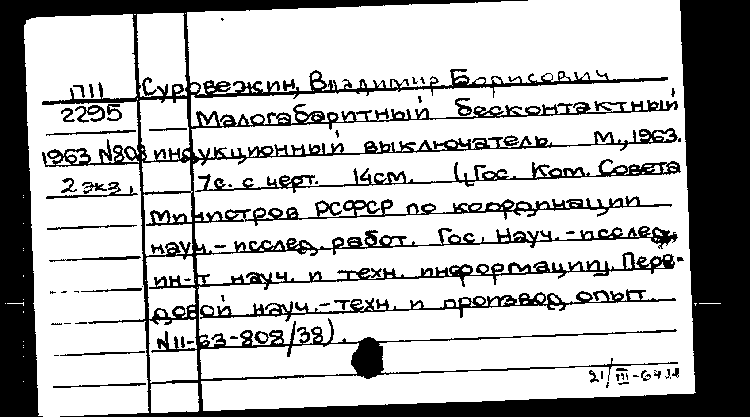 П11 Суровежин, Владимир Борисович
2295 Малогабаритный бесконтактный
1963 N808 индукционный выключатель. М., 1963.
2 экз. 7с. с черт. 14см. (Гос. Ком. Совета
Министров РСФСР по координации
науч.-исслед. работ. Гос. Науч.-исслед.
ин-т науч. и техн. информации. Пере-
довой науч.-техн. и производ. опыт.
N11-63-808/38).
21/III-64